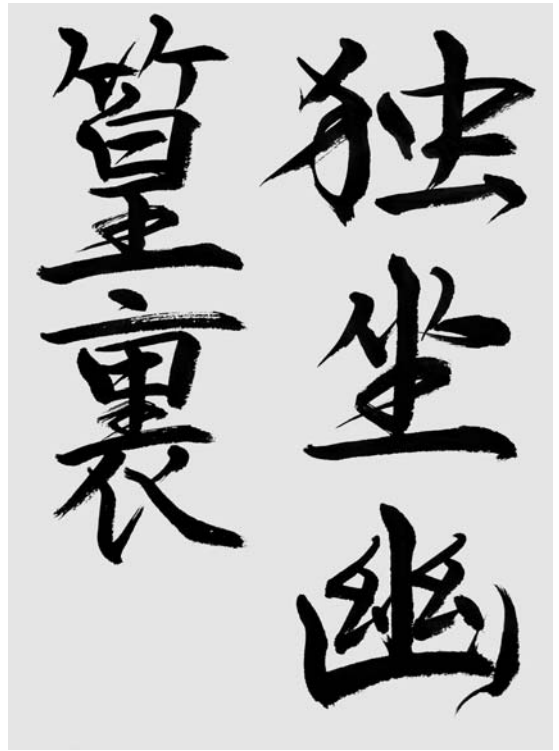 独坐幽
篁裏